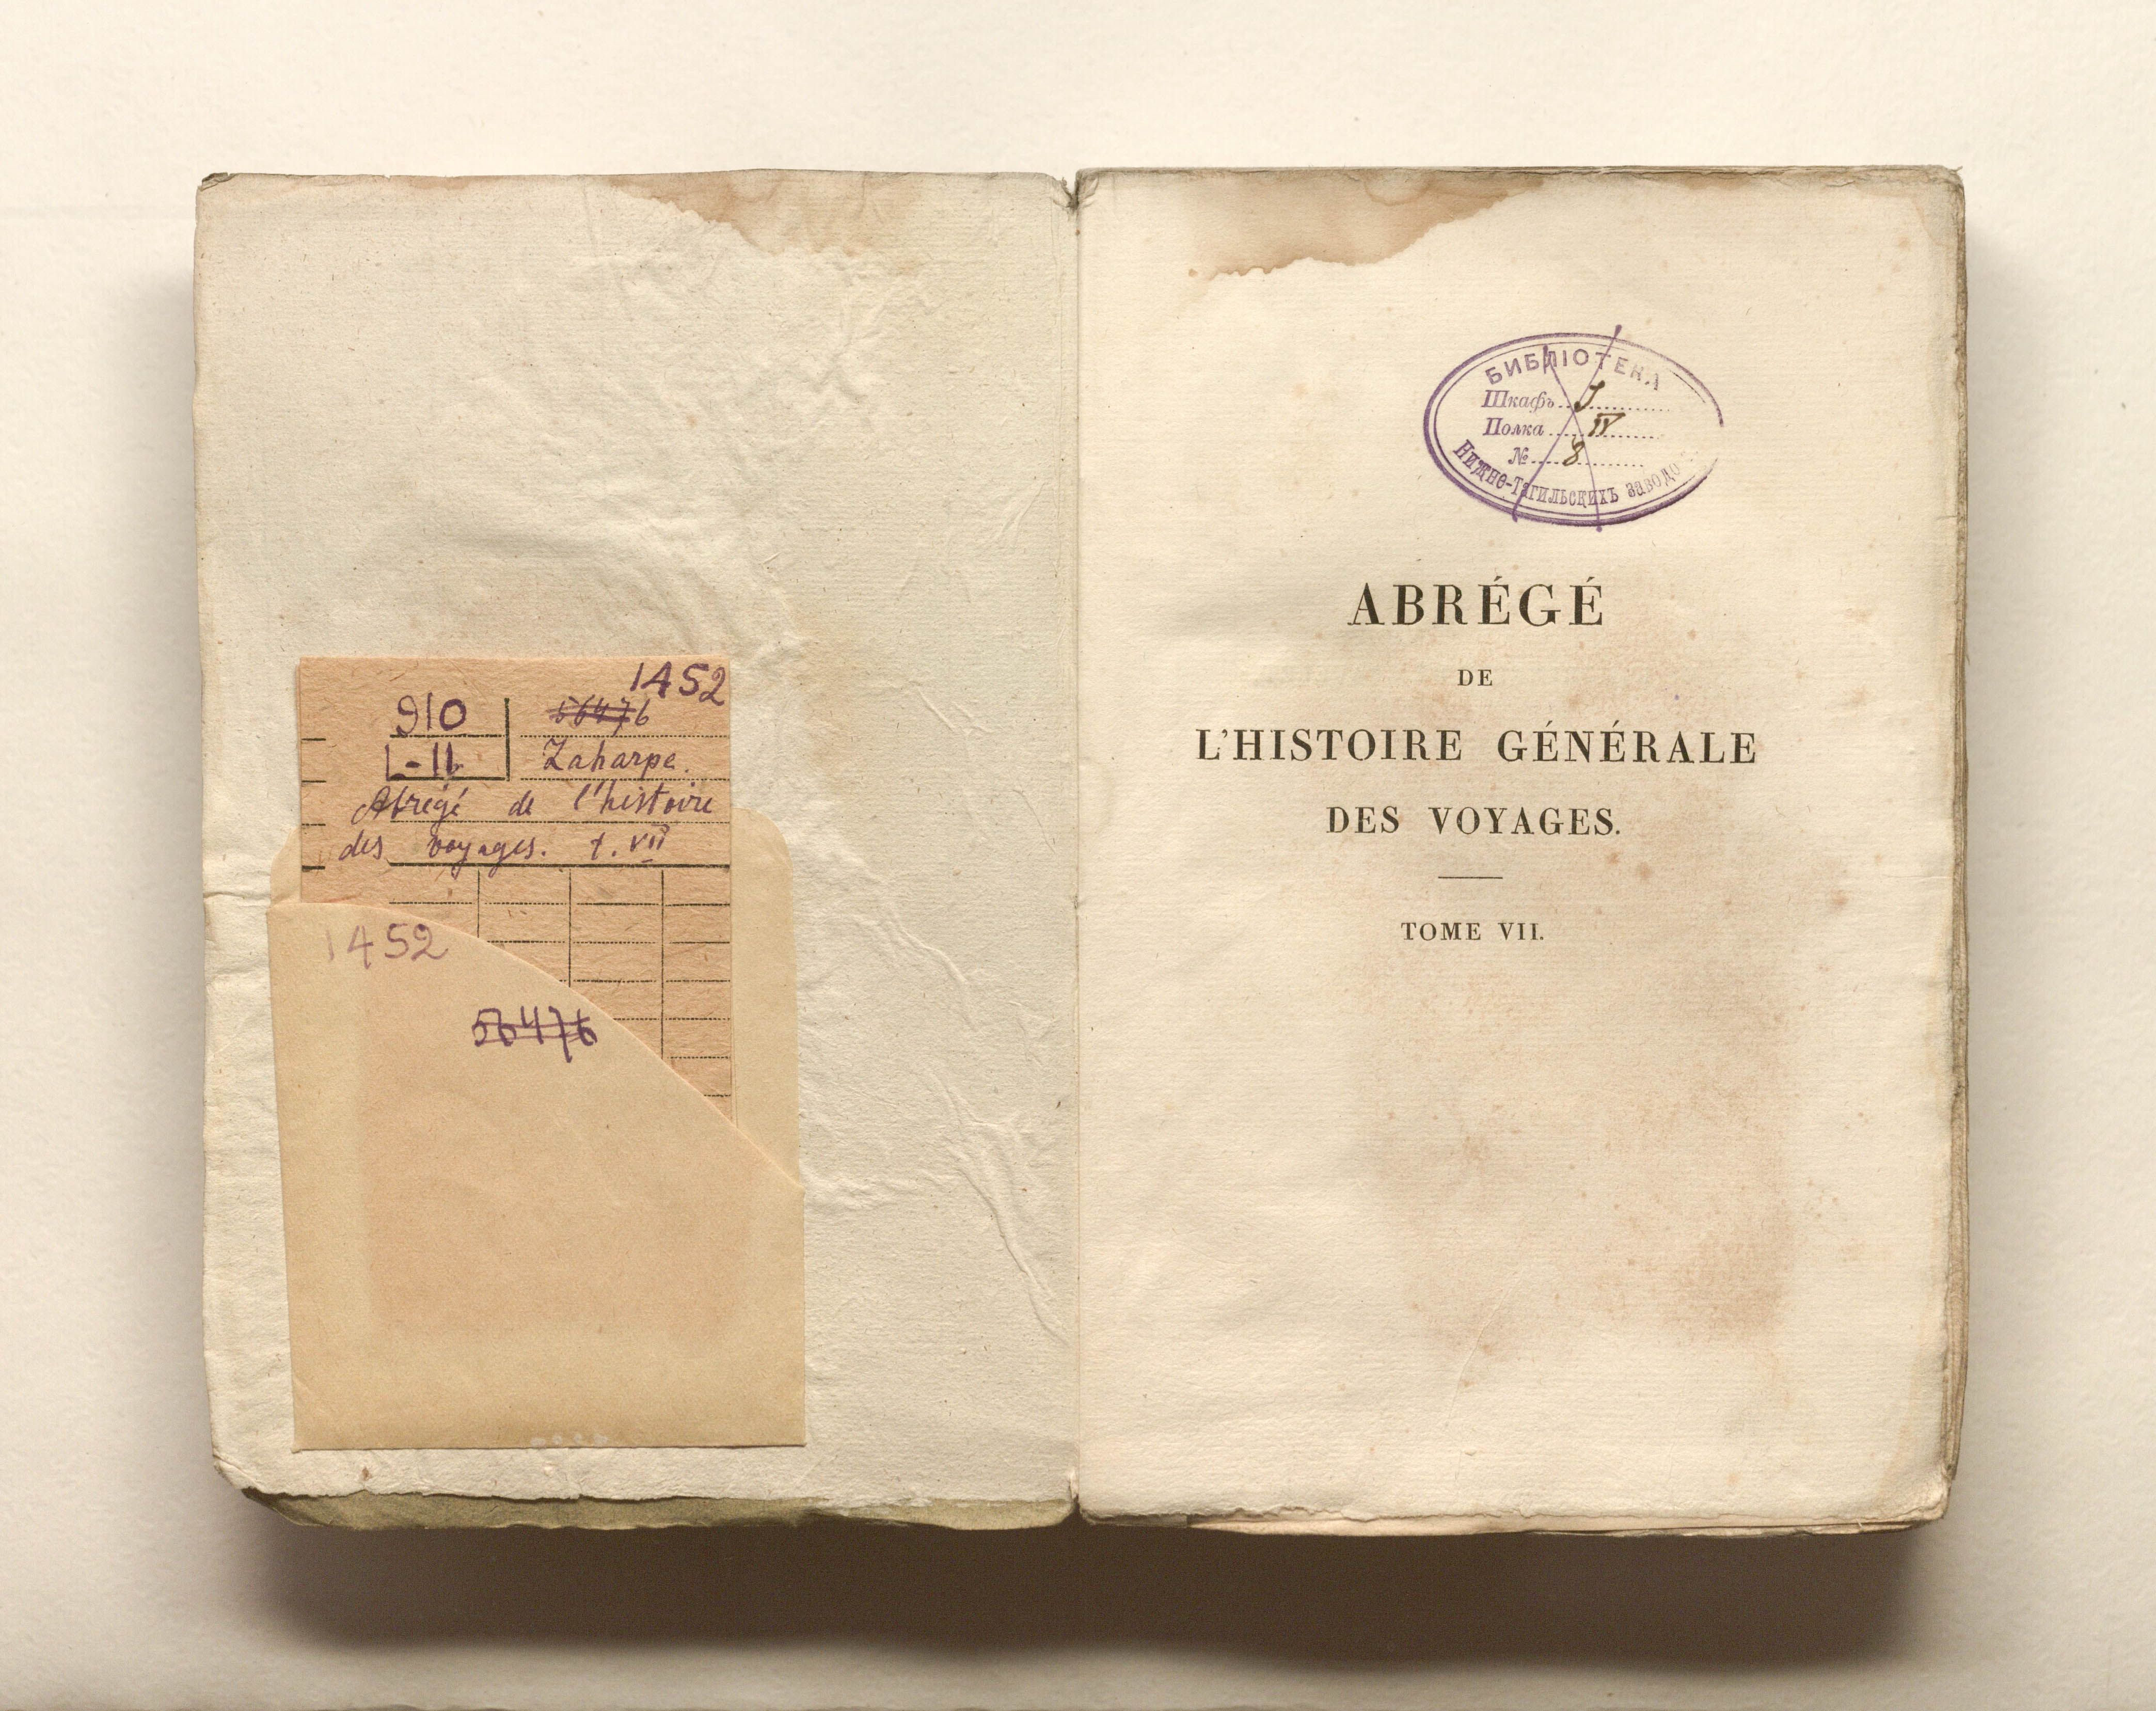 1452
910
56476
L-11
Laharpe.
Abrégé de l'histoire
des voyages. t. VII
1452
56476
БИБЛІОТЕКА
Шкафъ I
Полка IV
№ 8
Нижне-Тагильскихъ заводо
ABRÉGÉ
DE
L'HISTOIRE GÉNÉRALE
DES VOYAGES.
TOME VII.